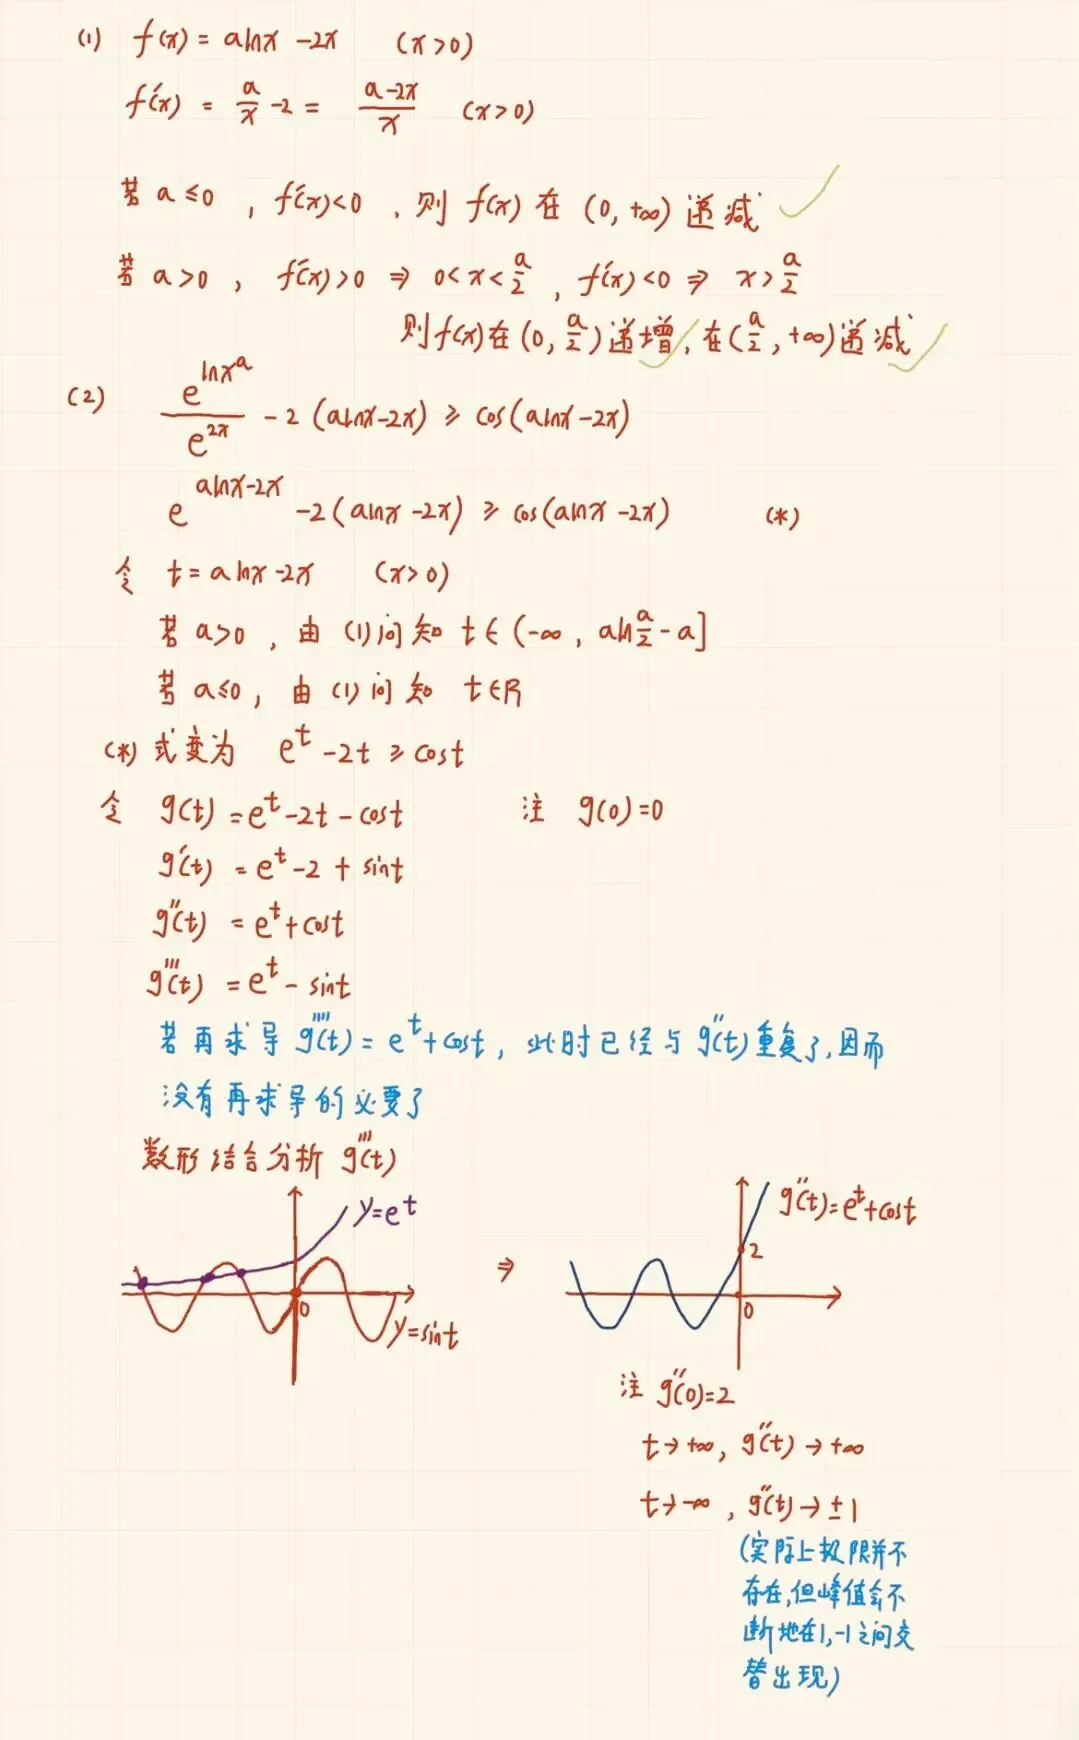 (1) f(x) = alnx - 2x (x>0)
f'(x) = a/x - 2 = (a-2x)/x (x>0)
若 a≤0 , f'(x)<0 , 则 f(x) 在 (0, +∞) 递减
若 a>0 , f'(x)>0 ⇒ 0<x<a/2 , f'(x)<0 ⇒ x>a/2
则 f(x) 在 (0, a/2) 递增, 在 (a/2, +∞) 递减
(2) e^(lnx^a)/e^(2x) - 2(alnx-2x) ≥ cos(alnx-2x)
e^(alnx-2x) - 2(alnx-2x) ≥ cos(alnx-2x) (*)
令 t = alnx-2x (x>0)
若 a>0 , 由 (1) 问知 t∈(-∞, aln a/2 - a]
若 a≤0 , 由 (1) 问知 t∈R
(*) 式变为 e^t - 2t ≥ cost
令 g(t) = e^t - 2t - cost 注 g(0)=0
g'(t) = e^t - 2 + sint
g''(t) = e^t + cost
g'''(t) = e^t - sint
若再求导 g''''(t) = e^t + cost , 此时已经与 g''(t) 重复了,因而
没有再求导的必要了
数形结合分析 g'''(t)
y=e^t
0
y=sint
⇒
g''(t)=e^t+cost
2
0
注 g''(0)=2
t→+∞, g''(t)→+∞
t→-∞ , g''(t)→±1
(实际上极限并不
存在,但峰值会不
断地在1,-1之间交
替出现)